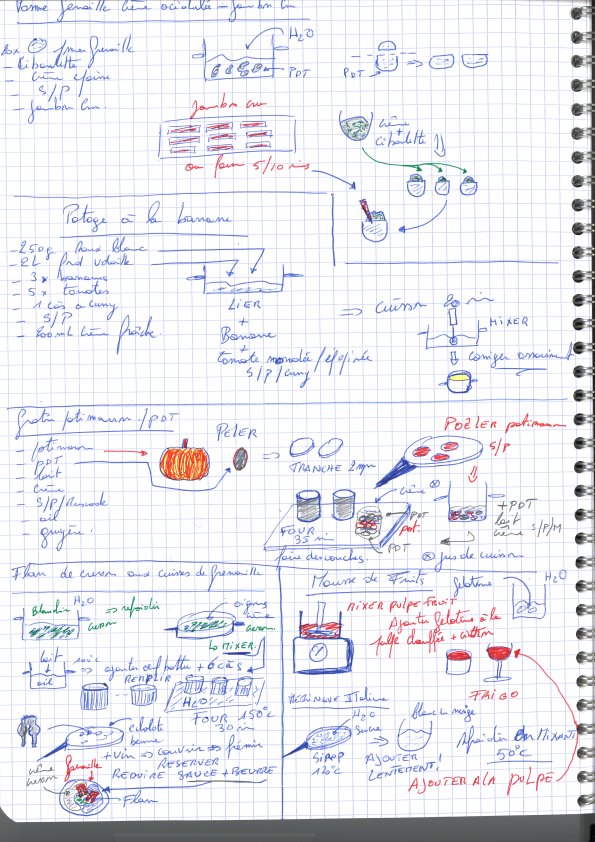 Pomme fenaille Crème acidulée - Jambon Cru
20x pomme Grenaille
- Ciboulette
- Crème épaisse
- S/P
- Jambon Cru.
H2O
PDT
PDT
Jambon cru
au four 5/10 min
Crème
+
Ciboulette
Potage à la banane
- 250g Roux blanc
- 2L fond volaille
- 3x bananes
- 5x tomates
- 1 càs curry
- S/P
- 200mL Crème fraîche.
LIER
+
Banane
+
tomate mondée/épépinée
S/P/curry
⇒ Cuisson
MIXER
Corriger assaisonnement
Gratin potimarron/PDT
- potimarron
- PDT
- lait
- Crème
- S/P/Muscade
- ail
- gruyère.
PELER
⇒
TRANCHE 2mm
POÊLER potimarron
S/P
FOUR
35 min
crème
PDT
pot.
PDT
+ PDT
lait
crème S/P/M
faire des couches
jus de cuisson
Flan de cresson aux cuisses de Grenouille
Blanchir
H2O
cresson
⇒ refroidir
oignons
crème
cresson
↳ MIXER.
lait
ail
⇒ ajouter œuf battu + 6 càs
REMPLIR
H2O
FOUR 150°C
30 min
échalote
beurre
+ Vin ⇒ couvrir ⇒ frémir
RESERVER
REDUIRE SAUCE + BEURRE
crème
cresson
Grenouille
Flan
Mousse de Fruits
Gélatine
H2O
MIXER PULPE FRUIT
Ajouter Gélatine à la
pulpe chauffée + citron
FRIGO
MERINGUE Italienne
H2O
Sucre
SIROP
120°C
blanc en neige
AJOUTER
LENTEMENT!
Refroidir En MIXANT
50°C
AJOUTER A LA PULPE